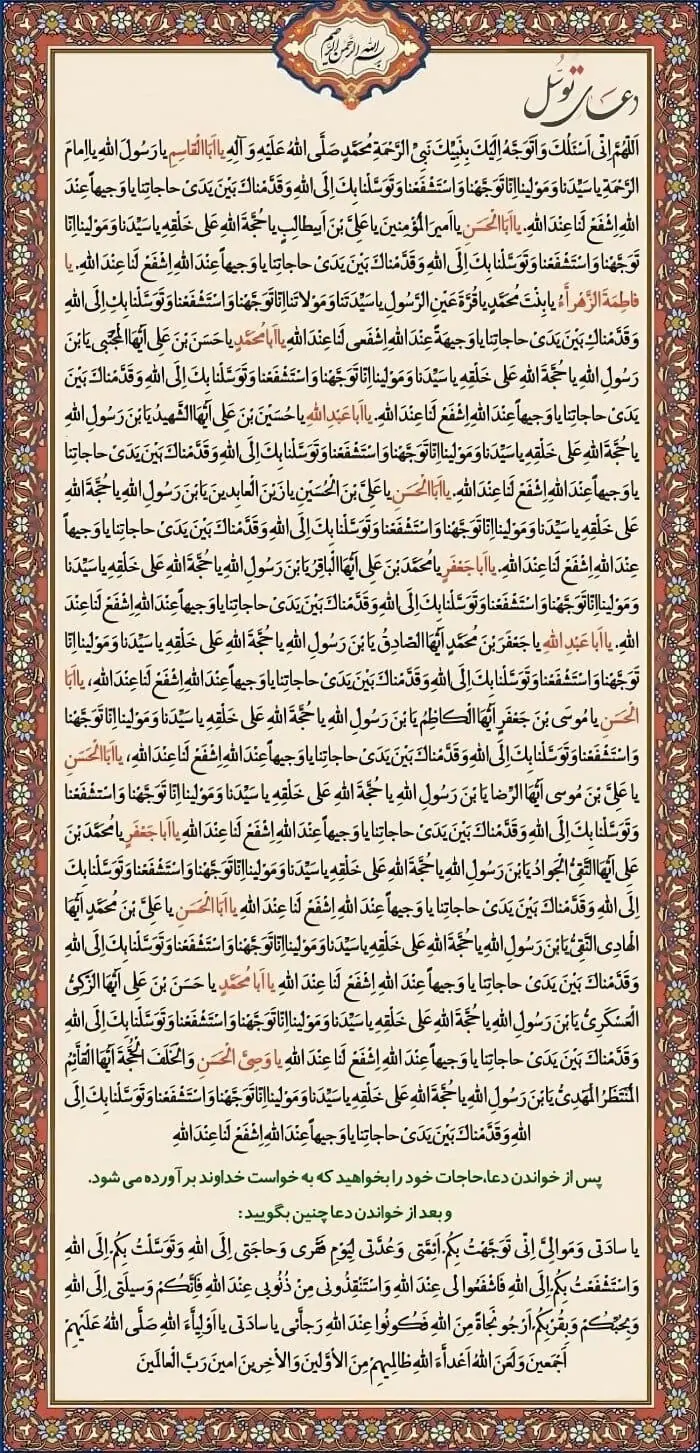 بسم الله الرحمن الرحیم
دعای توسّل
اَللّهُمَّ اِنّی اَسْئَلُكَ وَ اَتَوَجَّهُ اِلَيْكَ بِنَبِيِّكَ نَبِیِّ الرَّحْمَةِ مُحَمَّدٍ صَلَّی اللهُ عَلَيْهِ وَ آلِهِ يا اَبَا الْقاسِمِ يا رَسُولَ اللهِ يا اِمامَ
الرَّحْمَةِ يا سَيِّدَنا وَ مَوْلينا اِنّا تَوَجَّهْنا وَ اسْتَشْفَعْنا وَ تَوَسَّلْنا بِكَ اِلَی اللهِ وَ قَدَّمْناكَ بَيْنَ يَدَیْ حاجاتِنا يا وَجيهاً عِنْدَ
اللهِ اِشْفَعْ لَنا عِنْدَ اللهِ. يا اَبَا الْحَسَنِ يا اَميرَ الْمُؤْمِنينَ يا عَلِیَّ بْنَ اَبيطالِبٍ يا حُجَّةَ اللهِ عَلی خَلْقِهِ يا سَيِّدَنا وَ مَوْلينا اِنّا
تَوَجَّهْنا وَ اسْتَشْفَعْنا وَ تَوَسَّلْنا بِكَ اِلَی اللهِ وَ قَدَّمْناكَ بَيْنَ يَدَیْ حاجاتِنا يا وَجيهاً عِنْدَ اللهِ اِشْفَعْ لَنا عِنْدَ اللهِ. يا
فاطِمَةَ الزَّهْراَّءُ يا بِنْتَ مُحَمَّدٍ يا قُرَّةَ عَيْنِ الرَّسُولِ يا سَيِّدَتَنا وَ مَوْلاتَنا اِنّا تَوَجَّهْنا وَ اسْتَشْفَعْنا وَ تَوَسَّلْنا بِكِ اِلَی اللهِ
وَ قَدَّمْناكِ بَيْنَ يَدَیْ حاجاتِنا يا وَجيهَةً عِنْدَ اللهِ اِشْفَعی لَنا عِنْدَ اللهِ يا اَبا مُحَمَّدٍ يا حَسَنَ بْنَ عَلِیٍّ اَيُّهَا الْمُجْتَبی يَا بْنَ
رَسُولِ اللهِ يا حُجَّةَ اللهِ عَلی خَلْقِهِ يا سَيِّدَنا وَ مَوْلينا اِنّا تَوَجَّهْنا وَ اسْتَشْفَعْنا وَ تَوَسَّلْنا بِكَ اِلَی اللهِ وَ قَدَّمْناكَ بَيْنَ
يَدَیْ حاجاتِنا يا وَجيهاً عِنْدَ اللهِ اِشْفَعْ لَنا عِنْدَ اللهِ. يا اَبا عَبْدِ اللهِ يا حُسَيْنَ بْنَ عَلِیٍّ اَيُّهَا الشَّهيدُ يَا بْنَ رَسُولِ اللهِ
يا حُجَّةَ اللهِ عَلی خَلْقِهِ يا سَيِّدَنا وَ مَوْلينا اِنّا تَوَجَّهْنا وَ اسْتَشْفَعْنا وَ تَوَسَّلْنا بِكَ اِلَی اللهِ وَ قَدَّمْناكَ بَيْنَ يَدَیْ حاجاتِنا
يا وَجيهاً عِنْدَ اللهِ اِشْفَعْ لَنا عِنْدَ اللهِ. يا اَبَا الْحَسَنِ يا عَلِیَّ بْنَ الْحُسَيْنِ يا زَيْنَ الْعابِدينَ يَا بْنَ رَسُولِ اللهِ يا حُجَّةَ اللهِ
عَلی خَلْقِهِ يا سَيِّدَنا وَ مَوْلينا اِنّا تَوَجَّهْنا وَ اسْتَشْفَعْنا وَ تَوَسَّلْنا بِكَ اِلَی اللهِ وَ قَدَّمْناكَ بَيْنَ يَدَیْ حاجاتِنا يا وَجيهاً
عِنْدَ اللهِ اِشْفَعْ لَنا عِنْدَ اللهِ. يا اَبا جَعْفَرٍ يا مُحَمَّدَ بْنَ عَلِیٍّ اَيُّهَا الْباقِرُ يَا بْنَ رَسُولِ اللهِ يا حُجَّةَ اللهِ عَلی خَلْقِهِ يا سَيِّدَنا
وَ مَوْلينا اِنّا تَوَجَّهْنا وَ اسْتَشْفَعْنا وَ تَوَسَّلْنا بِكَ اِلَی اللهِ وَ قَدَّمْناكَ بَيْنَ يَدَیْ حاجاتِنا يا وَجيهاً عِنْدَ اللهِ اِشْفَعْ لَنا عِنْدَ
اللهِ. يا اَبا عَبْدِ اللهِ يا جَعْفَرَ بْنَ مُحَمَّدٍ اَيُّهَا الصّادِقُ يَا بْنَ رَسُولِ اللهِ يا حُجَّةَ اللهِ عَلی خَلْقِهِ يا سَيِّدَنا وَ مَوْلينا اِنّا
تَوَجَّهْنا وَ اسْتَشْفَعْنا وَ تَوَسَّلْنا بِكَ اِلَی اللهِ وَ قَدَّمْناكَ بَيْنَ يَدَیْ حاجاتِنا يا وَجيهاً عِنْدَ اللهِ اِشْفَعْ لَنا عِنْدَ اللهِ، يا اَبَا
الْحَسَنِ يا مُوسَی بْنَ جَعْفَرٍ اَيُّهَا الْكاظِمُ يَا بْنَ رَسُولِ اللهِ يا حُجَّةَ اللهِ عَلی خَلْقِهِ يا سَيِّدَنا وَ مَوْلينا اِنّا تَوَجَّهْنا
وَ اسْتَشْفَعْنا وَ تَوَسَّلْنا بِكَ اِلَی اللهِ وَ قَدَّمْناكَ بَيْنَ يَدَیْ حاجاتِنا يا وَجيهاً عِنْدَ اللهِ اِشْفَعْ لَنا عِنْدَ اللهِ، يا اَبَا الْحَسَنِ
يا عَلِیَّ بْنَ مُوسی اَيُّهَا الرِّضا يَا بْنَ رَسُولِ اللهِ يا حُجَّةَ اللهِ عَلی خَلْقِهِ يا سَيِّدَنا وَ مَوْلينا اِنّا تَوَجَّهْنا وَ اسْتَشْفَعْنا
وَ تَوَسَّلْنا بِكَ اِلَی اللهِ وَ قَدَّمْناكَ بَيْنَ يَدَیْ حاجاتِنا يا وَجيهاً عِنْدَ اللهِ اِشْفَعْ لَنا عِنْدَ اللهِ يا اَبا جَعْفَرٍ يا مُحَمَّدَ بْنَ
عَلِیٍّ اَيُّهَا التَّقِیُّ الْجَوادُ يَا بْنَ رَسُولِ اللهِ يا حُجَّةَ اللهِ عَلی خَلْقِهِ يا سَيِّدَنا وَ مَوْلينا اِنّا تَوَجَّهْنا وَ اسْتَشْفَعْنا وَ تَوَسَّلْنا بِكَ
اِلَی اللهِ وَ قَدَّمْناكَ بَيْنَ يَدَیْ حاجاتِنا يا وَجيهاً عِنْدَ اللهِ اِشْفَعْ لَنا عِنْدَ اللهِ يا اَبَا الْحَسَنِ يا عَلِیَّ بْنَ مُحَمَّدٍ اَيُّهَا
الْهادِی النَّقِیُّ يَا بْنَ رَسُولِ اللهِ يا حُجَّةَ اللهِ عَلی خَلْقِهِ يا سَيِّدَنا وَ مَوْلينا اِنّا تَوَجَّهْنا وَ اسْتَشْفَعْنا وَ تَوَسَّلْنا بِكَ اِلَی اللهِ
وَ قَدَّمْناكَ بَيْنَ يَدَیْ حاجاتِنا يا وَجيهاً عِنْدَ اللهِ اِشْفَعْ لَنا عِنْدَ اللهِ يا اَبا مُحَمَّدٍ يا حَسَنَ بْنَ عَلِیٍّ اَيُّهَا الزَّكِیُّ
الْعَسْكَرِیُّ يَا بْنَ رَسُولِ اللهِ يا حُجَّةَ اللهِ عَلی خَلْقِهِ يا سَيِّدَنا وَ مَوْلينا اِنّا تَوَجَّهْنا وَ اسْتَشْفَعْنا وَ تَوَسَّلْنا بِكَ اِلَی اللهِ
وَ قَدَّمْناكَ بَيْنَ يَدَیْ حاجاتِنا يا وَجيهاً عِنْدَ اللهِ اِشْفَعْ لَنا عِنْدَ اللهِ يا وَصِیَّ الْحَسَنِ وَ الْخَلَفَ الْحُجَّةَ اَيُّهَا الْقاَّئِمُ
الْمُنْتَظَرُ الْمَهْدِیُّ يَا بْنَ رَسُولِ اللهِ يا حُجَّةَ اللهِ عَلی خَلْقِهِ يا سَيِّدَنا وَ مَوْلينا اِنّا تَوَجَّهْنا وَ اسْتَشْفَعْنا وَ تَوَسَّلْنا بِكَ اِلَی
اللهِ وَ قَدَّمْناكَ بَيْنَ يَدَیْ حاجاتِنا يا وَجيهاً عِنْدَ اللهِ اِشْفَعْ لَنا عِنْدَ اللهِ
پس از خواندن دعا،حاجات خود را بخواهید که به خواست خداوند بر آورده می شود.
و بعد از خواندن دعا چنین بگویید:
يا سادَتی وَ مَوالِیَّ اِنّی تَوَجَّهْتُ بِكُمْ اَئِمَّتی وَ عُدَّتی لِيَوْمِ فَقْری وَ حاجَتی اِلَی اللهِ وَ تَوَسَّلْتُ بِكُمْ اِلَی اللهِ
وَ اسْتَشْفَعْتُ بِكُمْ اِلَی اللهِ فَاشْفَعُوا لی عِنْدَ اللهِ وَ اسْتَنْقِذُونی مِنْ ذُنُوبی عِنْدَ اللهِ فَاِنَّكُمْ وَسيلَتی اِلَی اللهِ
وَ بِحُبِّكُمْ وَ بِقُرْبِكُمْ اَرْجُو نَجاةً مِنَ اللهِ فَكُونُوا عِنْدَ اللهِ رَجاَّئی يا سادَتی يا اَوْلِياَّءَ اللهِ صَلَّی اللهُ عَلَيْهِمْ
اَجْمَعينَ وَ لَعَنَ اللهُ اَعْداَّءَ اللهِ ظالِميهِمْ مِنَ الْاَوَّلينَ وَ الْاخِرينَ امينَ رَبَّ الْعالَمينَ